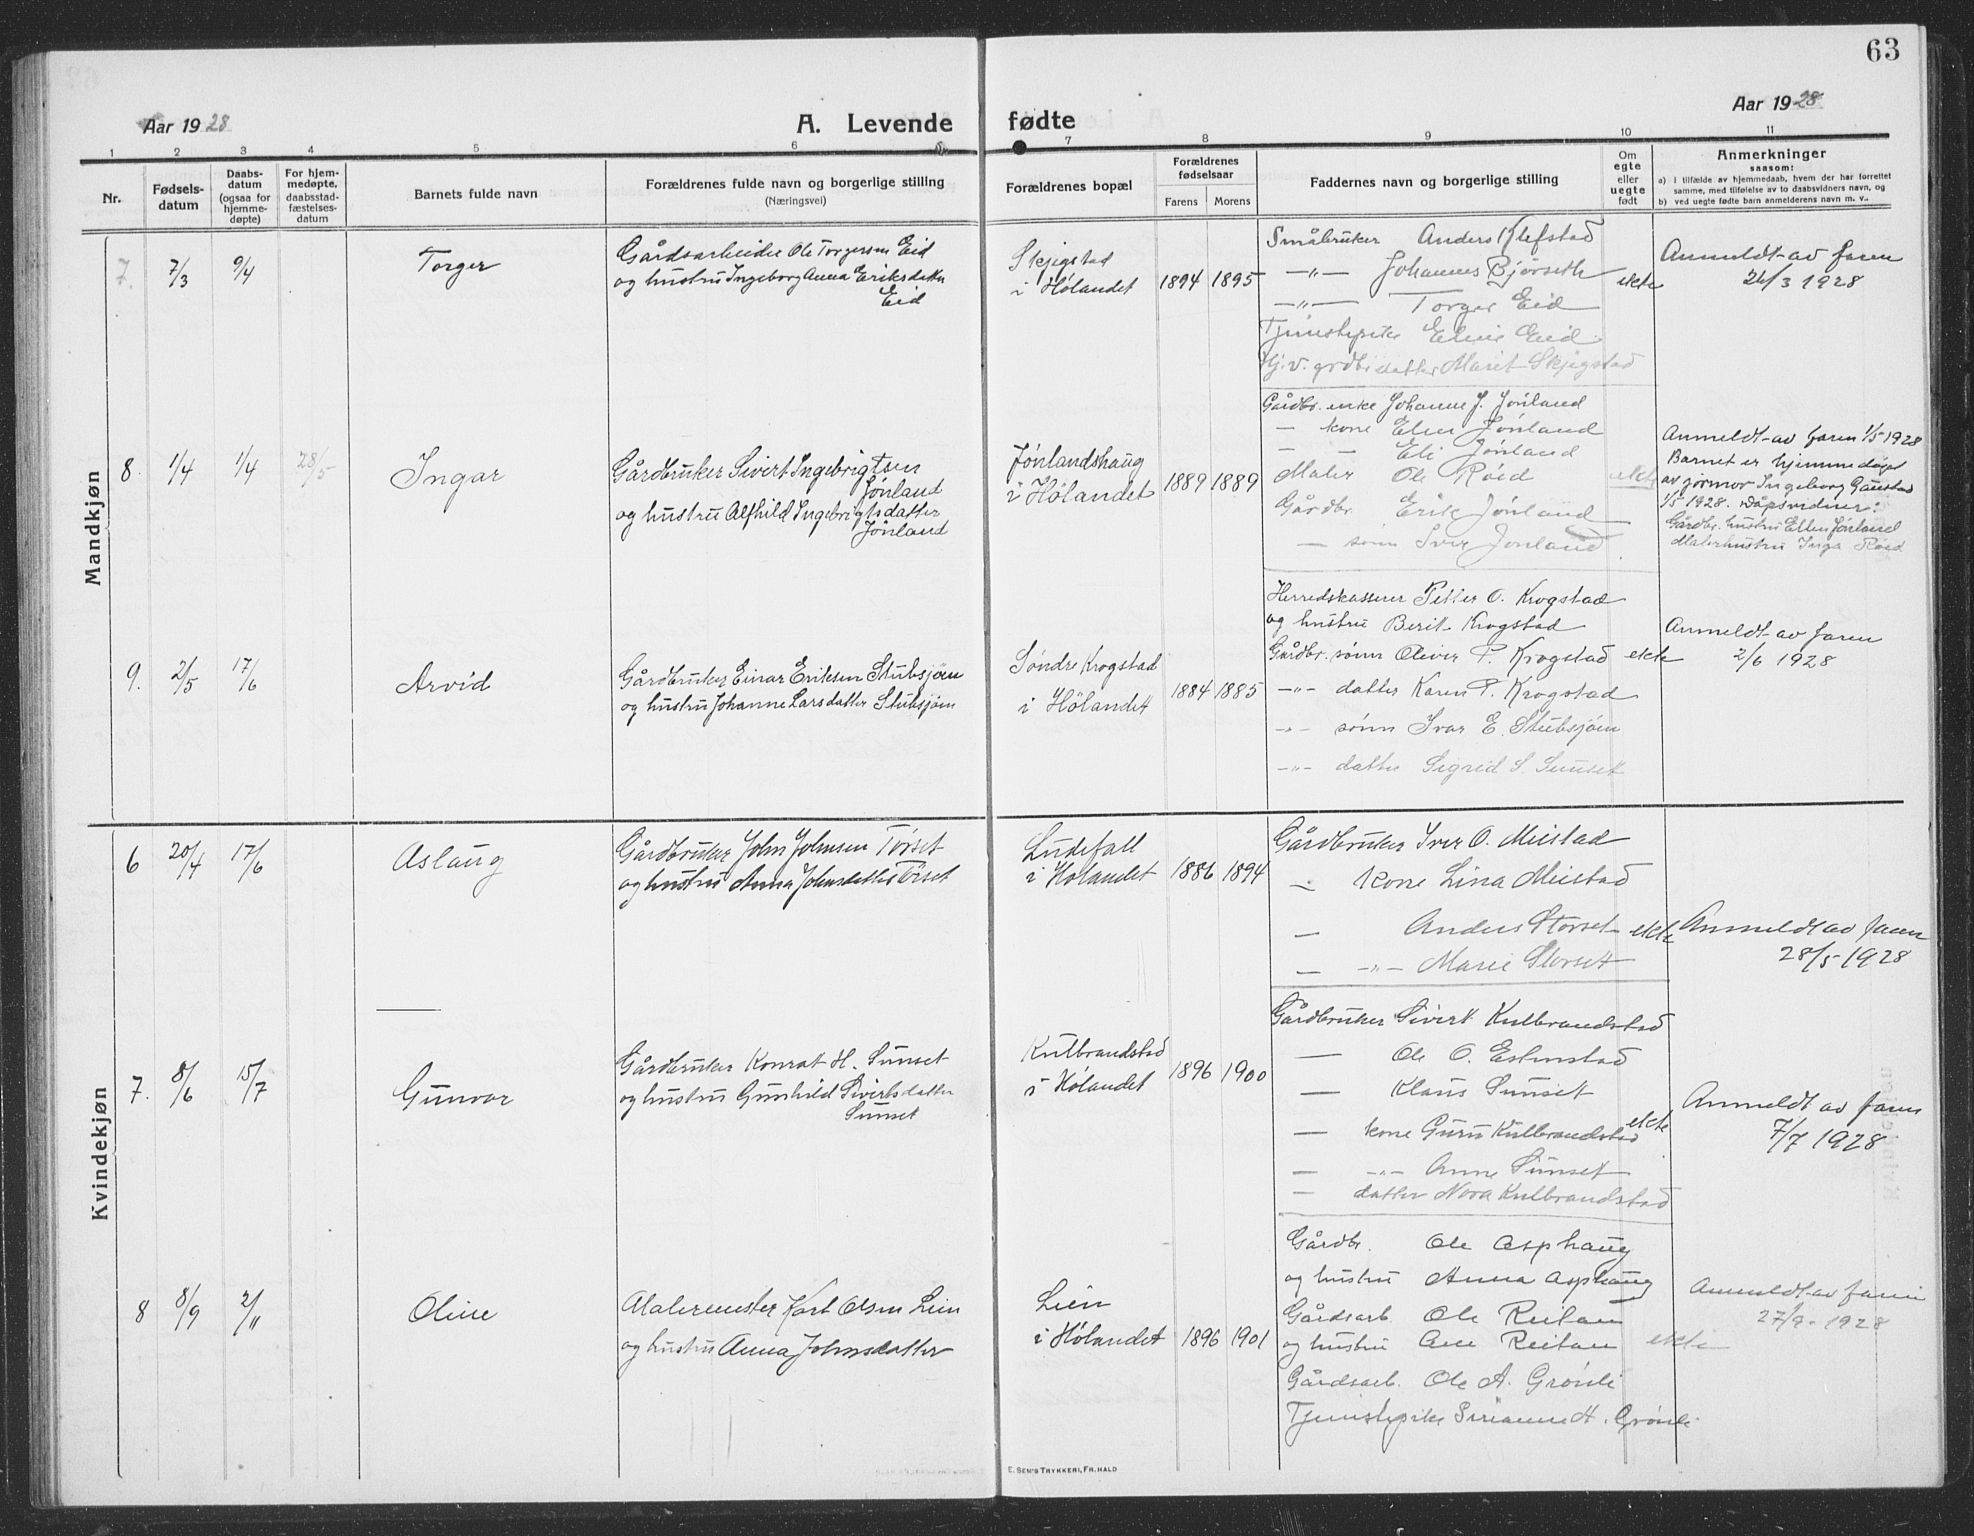 63
Aar 1928
A. Levende fødte
Aar 1928
1 2 3 4 5 6 7 8 9 10 11
Nr.
Fødsels-
datum
Daabs-
datum
(ogsaa for
hjemme-
døpte)
For hjem-
medøpte,
daabsstad-
fæstelses-
datum
Barnets fulde navn
Forældrenes fulde navn og borgerlige stilling
(Næringsvei)
Forældrenes bopæl
Forældrenes
fødselsaar
Farens Morens
Faddernes navn og borgerlige stilling
Om
egte
eller
uegte
født
Anmerkninger
saasom:
a) i tilfælde av hjemmedaab, hvem der har forrettet
samme, med tilføielse av to daabsvidners navn, og
b) ved uegte fødte barn anmelderens navn m. v.
Mandkjøn
7. 7/3 9/4
Torger
Gårdsarbeider Ole Torgersen Eid
og hustru Ingeborg Anna Eriksdatter
Eid
Skjigstad
i Hølandet
1894 1895
Småbruker Anders Klefstad
—"— Johannes Bjørseth
—"— Torger Eid
Tjenestepike Eline Eid
datter Marit Skjigstad
ekte
Anmeldt av faren
26/3 1928
8. 1/4 1/4 28/5
Ingar
Gårdbruker Sivert Ingebrigtsen
Jønland
og hustru Alfhild Ingebrigtsdatter
Jønland
Jønlandshaug
i Hølandet
1889 1889
Gårdbr. enke Johanne J. Jønland
— kone Ellen Jønland
— Eli Jønland
Maler Ole Røid
Gårdbr. Erik Jønland
— sønn Iver Jønland
ekte
Anmeldt av faren 1/5 1928
Barnet er hjemmedøpt
av jormor Ingeborg Gaustad
1/5 1928. Dåpsvidner:
Gårdbr. hustru Ellen Jønland
Malerhustru Inga Røid
9. 2/5 17/6
Arvid
Gårdbruker Einar Eriksen Stubsjøen
og hustru Johanne Larsdatter Stubsjøen
Søndre Krogstad
i Hølandet
1884 1885
Herredskasserer Petter O. Krogstad
og hustru Berit Krogstad
Gårdbr. sønn Oliver P. Krogstad
—"— datter Karen P. Krogstad
—"— sønn Ivar E. Stubsjøen
—"— datter Sigrid S. Sunset
ekte
Anmeldt av faren
2/6 1928
Kvindekjøn
6 20/4 17/6
Aslaug
Gårdbruker John Johnsen Tørset
og hustru Anna Johnsdatter Tørset
Ludefall
i Hølandet
1886 1894
Gårdbruker Iver O. Meistad
— kone Lina Meistad
— Anders Storset
— —"— Marie Storset
ekte
Anmeldt av faren
28/5 1928
7. 8/6 15/7
Gunvor
Gårdbruker Konrat H. Sunset
og hustru Gunhild Sivertsdatter
Sunset
Kulbrandstad
i Hølandet
1896 1900
Gårdbruker Sivert Kulbrandstad
— Ole O. Estenstad
— Klaus Sunset
— kone Guru Kulbrandstad
— —"— Anne Sunset
— datter Nora Kulbrandstad
ekte
Anmeldt av faren
7/7 1928
8 8/9 2/11
Oline
Malermester Karl Olsen Lien
og hustru Anna Johnsdatter
Lien
i Hølandet
1896 1901
Gårdbr. Ole Asphaug
og hustru Anna Asphaug
Gårdsarb. Ole Reitan
og hustru Ane Reitan
Gårdsarb. Ole A. Grønli
Tjenestepike Serianna H. Grønli
ekte
Anmeldt av faren
27/9 1928
E. SEM'S TRYKKERI, FR.HALD